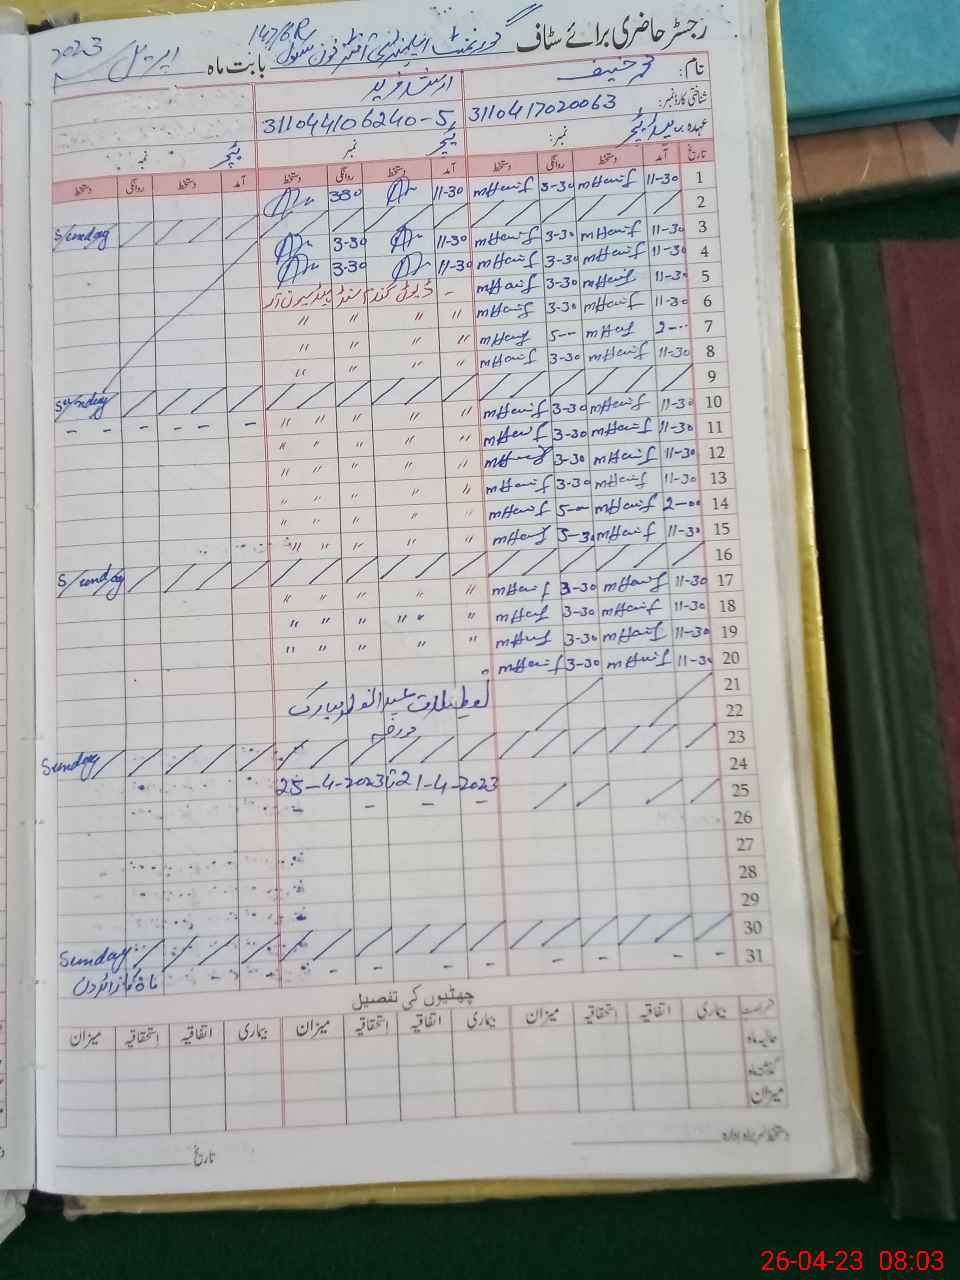 رجسٹر حاضری برائے سٹاف گورنمنٹ ایلیمنٹری آفٹر نون سکول 147/6R بابت ماہ اپریل 2023
نام: محمد حنیف ارشد فرید
شناختی کارڈ نمبر: 3110417020063 311044106240-5
عہدہ: نمبر: ٹیچر نمبر ٹیچر نمبر
تاریخ آمد دستخط روانگی دستخط آمد دستخط روانگی دستخط آمد دستخط روانگی دستخط
1 11-30 mHanif 3-30 mHanif 11-30 330
2 Sunday
3 11-30 mHanif 3-30 mHanif 11-30 3-30
4 11-30 mHanif 3-30 mHanif 11-30 3-30
5 11-30 mHanif 3-30 mHanif - ڈیوٹی گندم سنٹر
6 11-30 mHanif 3-30 mHanif " " " "
7 2-- mHanif 5-- mHanif " " " "
8 11-30 mHanif 3-30 mHanif " " " "
9 Sunday
10 11-30 mHanif 3-30 mHanif " " " " " - - - - - -
11 11-30 mHanif 3-30 mHanif " " " " "
12 11-30 mHanif 3-30 mHanif " " " " "
13 11-30 mHanif 3-30 mHanif " " " " "
14 2-00 mHanif 5-00 mHanif " " " " "
15 11-30 mHanif 3-30 mHanif " " " " "
16 Sunday
17 11-30 mHanif 3-30 mHanif " " " " "
18 11-30 mHanif 3-30 mHanif " " " " " "
19 11-30 mHanif 3-30 mHanif " " " " "
20 11-30 mHanif 3-30 mHanif
21 تعطیلات عید الفطر مبارک
22 مورخہ
23 Sunday
24 21-4-2023 تا 25-4-2023
25
26
27
28
29
30 Sunday
31 - - - - - - - -
چھٹیوں کی تفصیل
فہرست بیماری اتفاقیہ استحقاقیہ میزان بیماری اتفاقیہ استحقاقیہ میزان بیماری اتفاقیہ استحقاقیہ میزان
حالیہ ماہ
گذشتہ ماہ
میزان
دستخط سربراہ ادارہ
تاریخ
26-04-23 08:03